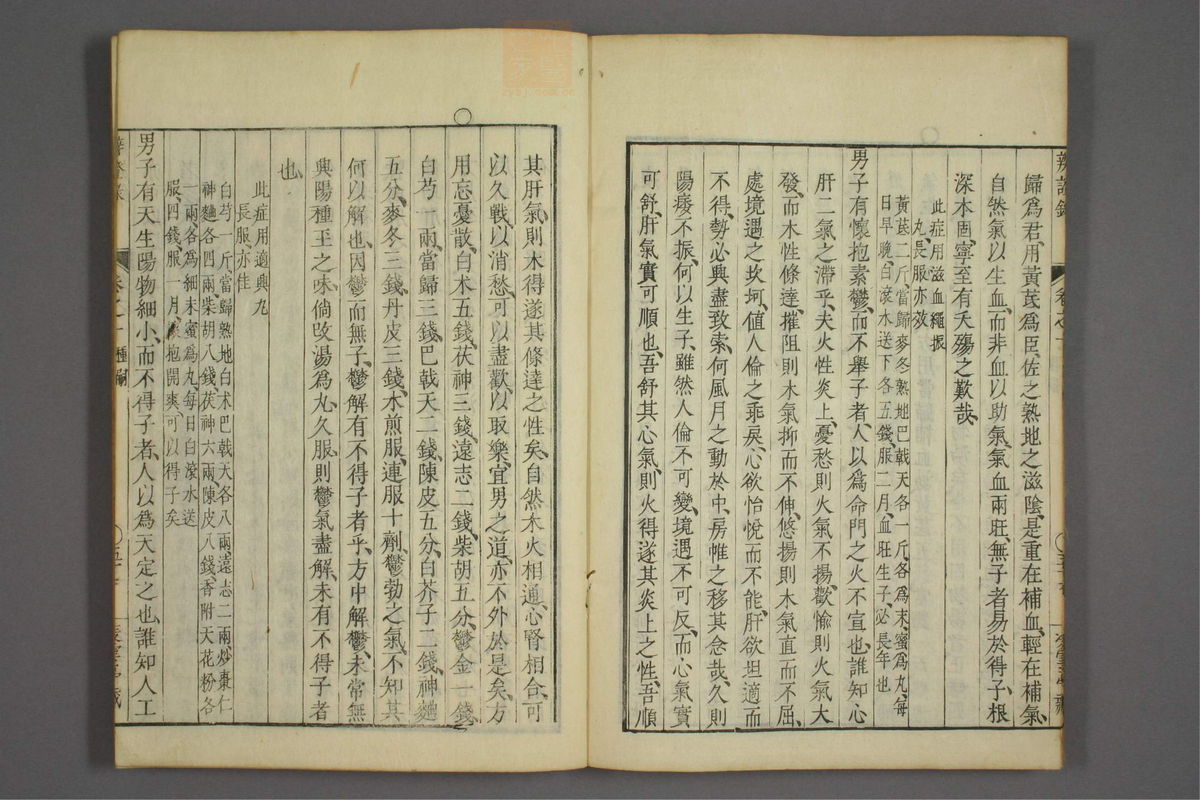 歸爲君、用黃芪爲臣、佐之熟地之滋陰、是重在補血、輕在補氣、
自然氣以生血、而非血以助氣、氣血兩旺、無子者易於得子、根
深本固、寧至有夭殤之歎哉、
此症用滋血繩振
丸、長服亦效
黃芪二斤、當歸麥冬熟地巴戟天各一斤、各爲末、蜜爲丸、每
日早晚、白滾水送下各五錢、服二月、血旺生子、必長年也
男子有懷抱素鬱、而不舉子者、人以爲命門之火不宣也、誰知心
肝二氣之滯乎、夫火性炎上、憂愁則火氣不揚、歡愉則火氣大
發、而木性條達、摧阻則木氣抑而不伸、悠揚則木氣直而不屈、
處境遇之坎坷、值人倫之乖戾、心欲怡悅而不能、肝欲坦適而
不得、勢必興盡致索、何風月之動於中、房帷之移其念哉、久則
陽痿不振、何以生子、雖然人倫不可變、境遇不可反、而心氣實
可舒、肝氣實可順也、吾舒其心氣、則火得遂其炎上之性、吾順
其肝氣、則木得遂其條達之性矣、自然木火相通、心腎相合、可
以久戰、以消愁、可以盡歡、以取樂、宜男之道、亦不外於是矣、方
用忘憂散、白术五錢、茯神三錢、遠志二錢、柴胡五分、鬱金一錢、
白芍一兩、當歸三錢、巴戟天二錢、陳皮五分、白芥子二錢、神麯
五分、麥冬三錢、丹皮三錢、水煎服、連服十劑、鬱勃之氣、不知其
何以解也、因鬱而無子、鬱解有不得子者乎、方中解鬱、未常無
興陽種玉之味、倘攺湯爲丸、久服、則鬱氣盡解、未有不得子者
也
此症用適興丸
長服、亦佳
白芍一斤、當歸熟地白术巴戟天各八兩、遠志二兩、炒棗仁
神麯各四兩、柴胡八錢、茯神六兩、陳皮八錢、香附天花粉各
一兩、各爲細末、蜜爲丸、每日白滾水送
服、四錢、服一月、懷抱開爽、可以得子矣
男子有天生陽物細小、而不得子者、人以爲天定之也、誰知人工